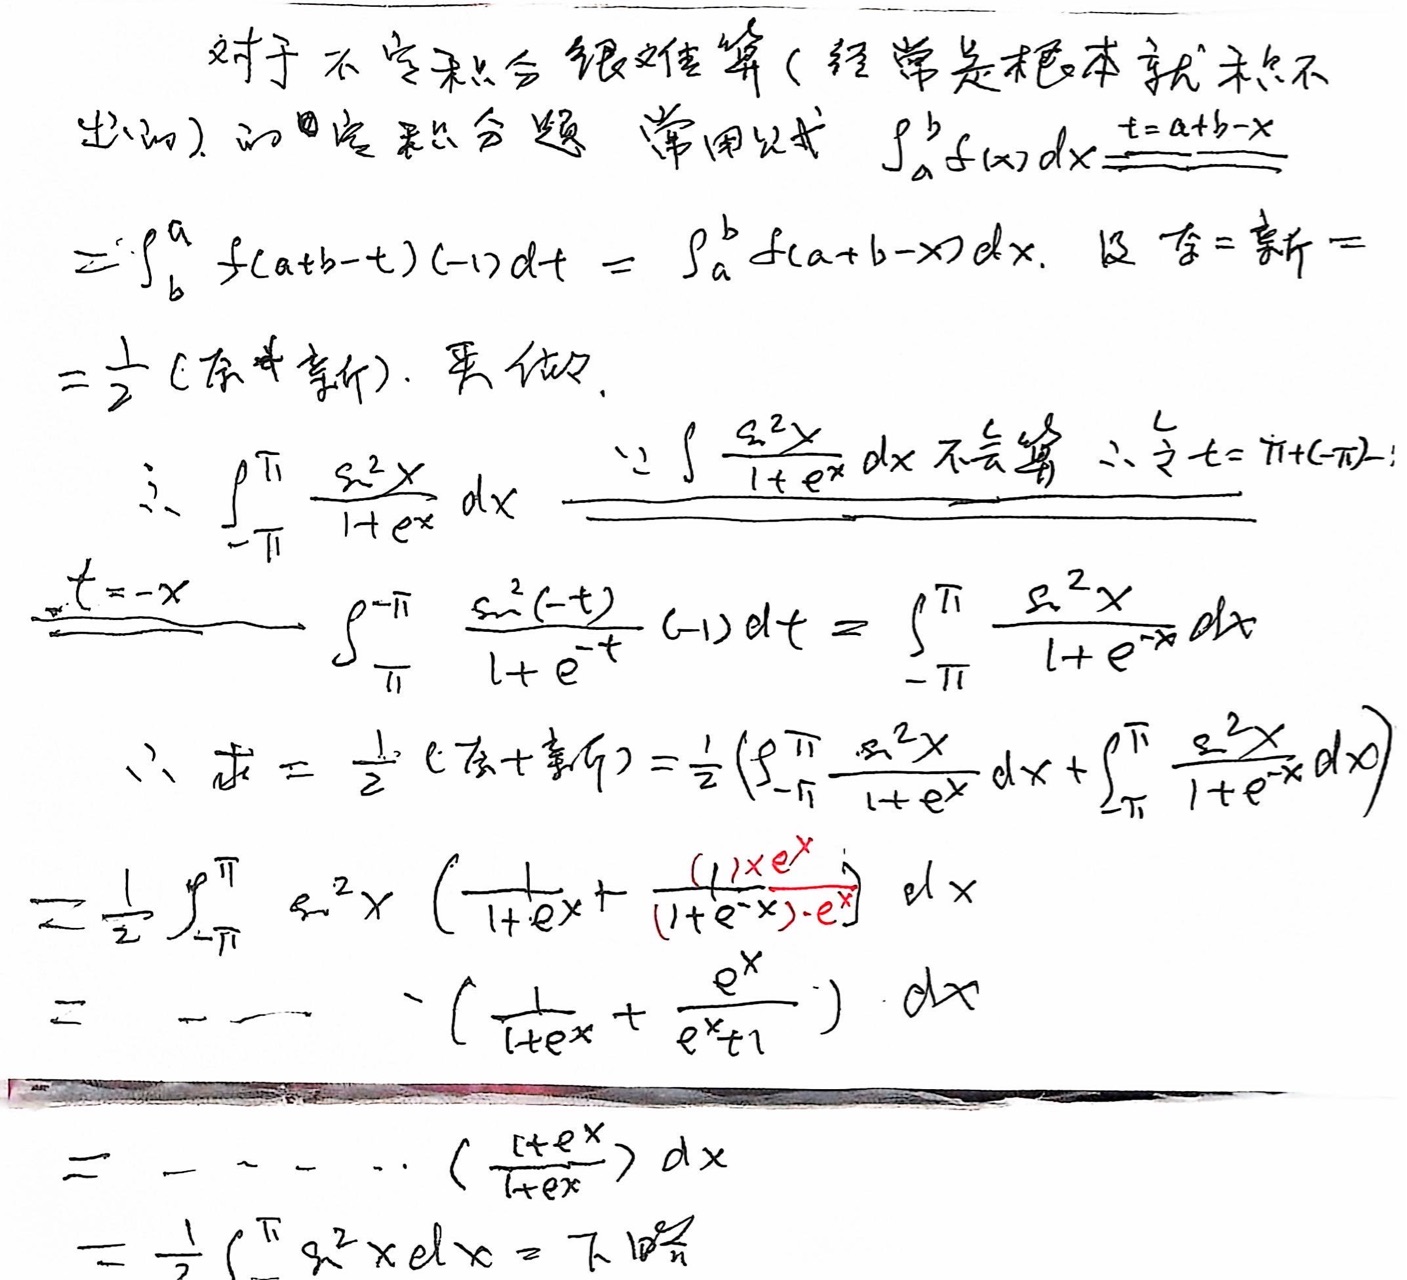 对于不定积分很难算(经常是根本就积不
出的)的定积分题 常用公式 ∫_a^b f(x)dx t=a+b-x
=∫_b^a f(a+b-t)(-1)dt = ∫_a^b f(a+b-x)dx. 及 原=新=
=1/2(原+新).来做.
∴ ∫_{-π}^{π} sin²x/(1+e^x) dx ∵∫ sin²x/(1+e^x) dx 不会算 ∴令 t=π+(-π)-
t=-x ∫_{π}^{-π} sin²(-t)/(1+e^{-t}) (-1)dt = ∫_{-π}^{π} sin²x/(1+e^{-x}) dx
∴ 求 = 1/2(原+新)=1/2(∫_{-π}^{π} sin²x/(1+e^x) dx+∫_{-π}^{π} sin²x/(1+e^{-x}) dx)
=1/2 ∫_{-π}^{π} sin²x (1/(1+e^x)+(1)×e^x/((1+e^{-x})·e^x)) dx
= - — (1/(1+e^x)+e^x/(e^x+1)) dx
= - - - - ·· ((1+e^x)/(1+e^x)) dx
=1/2 ∫^π sin²xdx = 下略